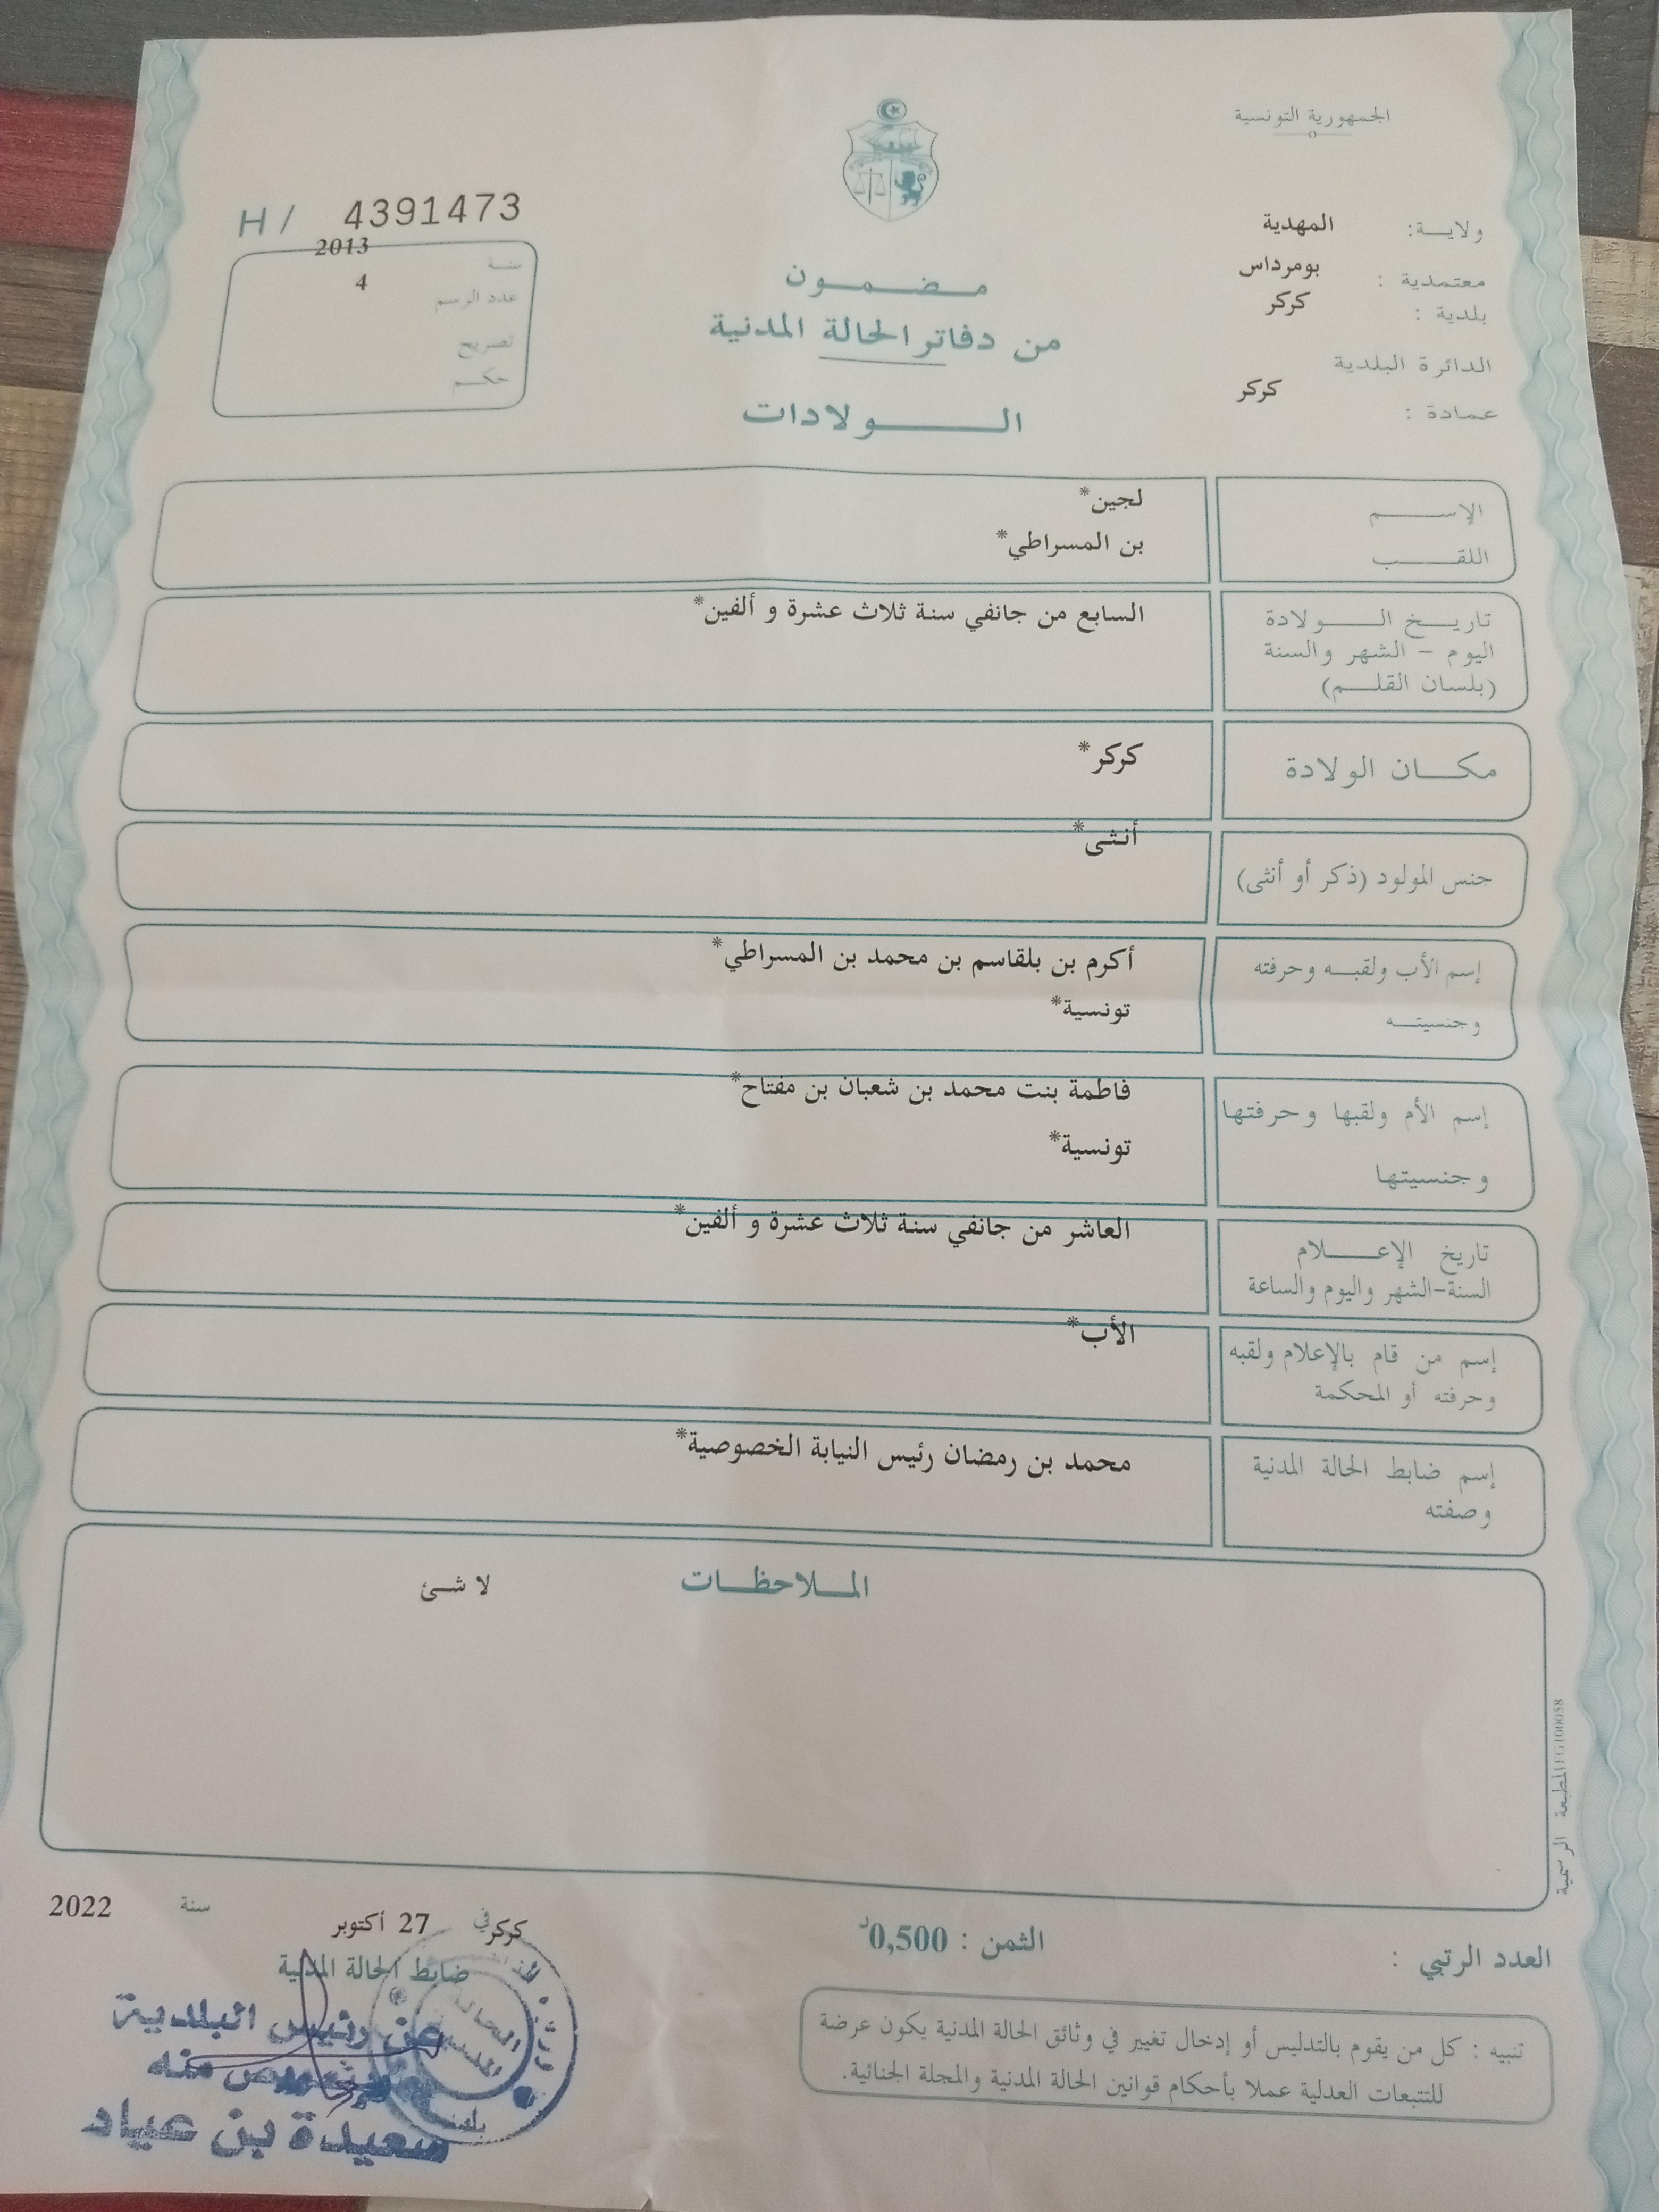 الجمهورية التونسية
ولاية: المهدية
معتمدية : بومرداس
بلدية : كركر
الدائرة البلدية
عمادة : كركر
H / 4391473
سنة 2013
عدد الرسم 4
تصريح
حكم
مضمون
من دفاتر الحالة المدنية
الولادات
الإسم لجين*
اللقب بن المسراطي*
تاريخ الولادة السابع من جانفي سنة ثلاث عشرة و ألفين*
اليوم - الشهر والسنة
(بلسان القلم)
مكان الولادة كركر*
جنس المولود (ذكر أو أنثى) أنثى*
إسم الأب ولقبه وحرفته أكرم بن بلقاسم بن محمد بن المسراطي*
وجنسيته تونسية*
إسم الأم ولقبها وحرفتها فاطمة بنت محمد بن شعبان بن مفتاح*
وجنسيتها تونسية*
تاريخ الإعلام العاشر من جانفي سنة ثلاث عشرة و ألفين*
السنة-الشهر واليوم والساعة
إسم من قام بالإعلام ولقبه الأب*
وحرفته أو المحكمة
إسم ضابط الحالة المدنية محمد بن رمضان رئيس النيابة الخصوصية*
وصفته
الملاحظات لا شئ
المطبعة الرسمية
كركر في 27 أكتوبر سنة 2022
ضابط الحالة المدنية
عن رئيس البلدية
منه
سعيدة بن عياد
الحالة
المدنية
العدد الرتبي :
الثمن : 0,500د
تنبيه : كل من يقوم بالتدليس أو إدخال تغيير في وثائق الحالة المدنية يكون عرضة
للتتبعات العدلية عملا بأحكام قوانين الحالة المدنية والمجلة الجنائية.